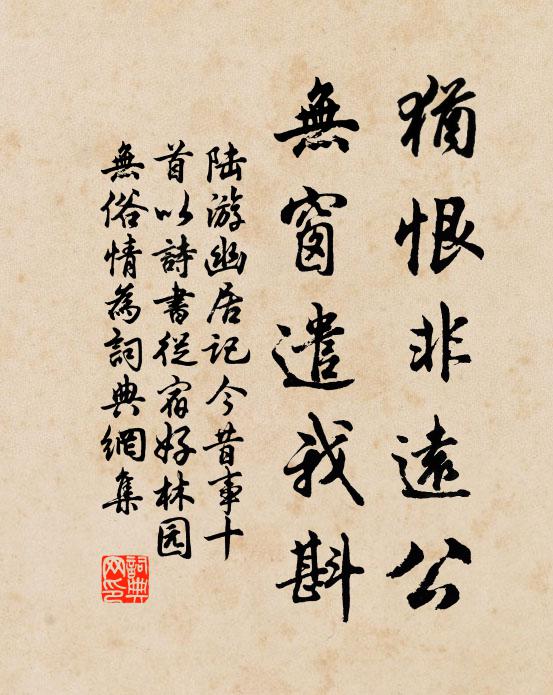 猶恨非遠公
無窗遣我斟
陆游幽居記今昔事十
首以詩書從宿好林园
無俗情為詞典網集
詞典
网印